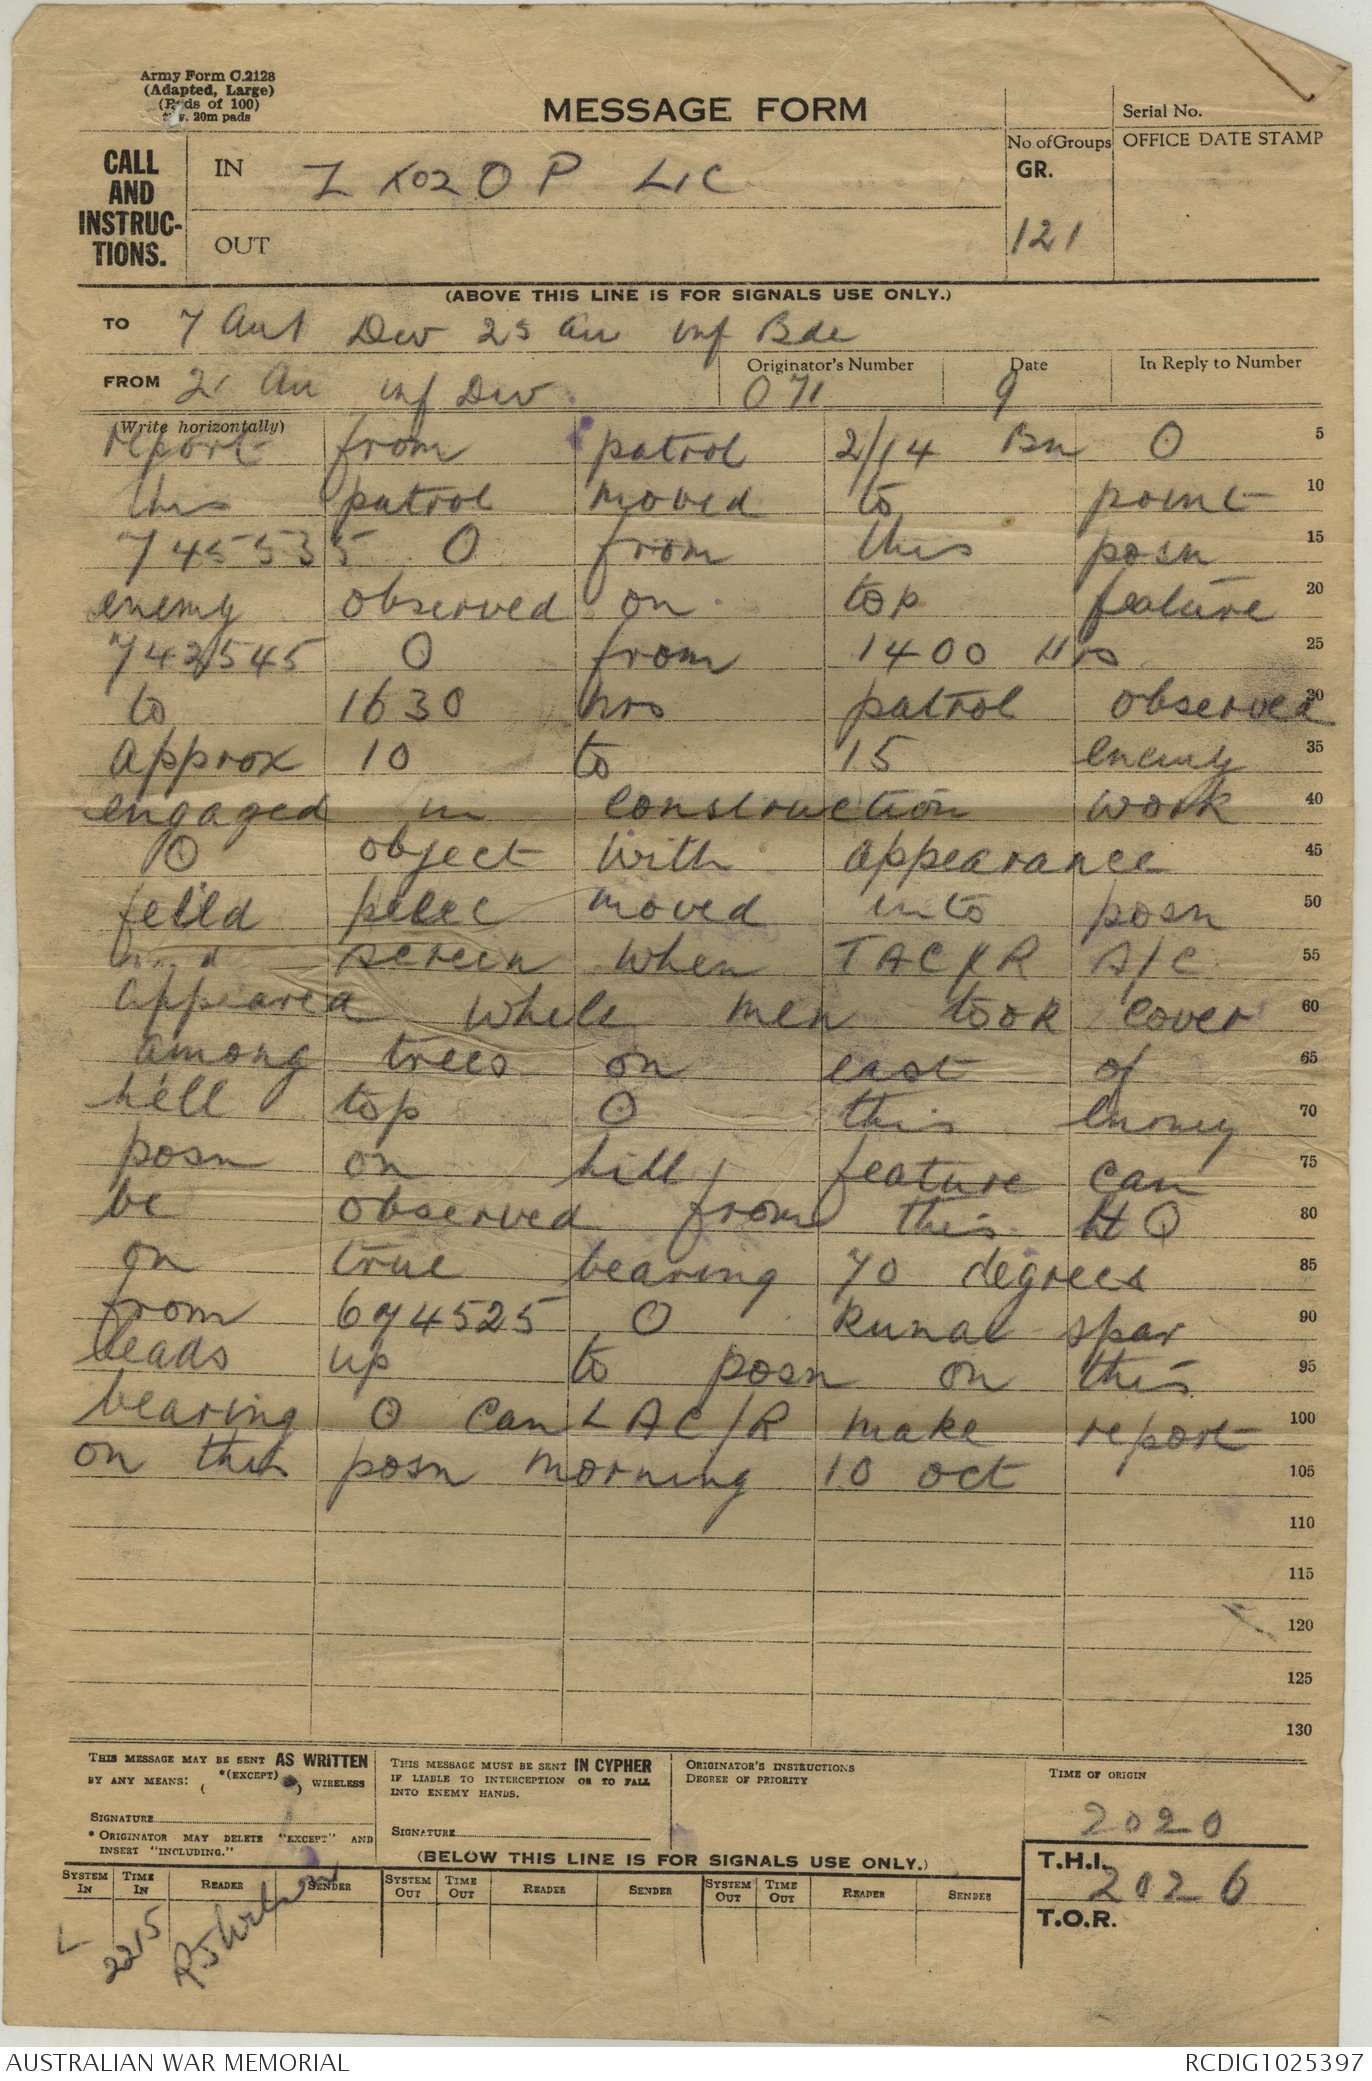 Army Form C.2128
(Adapted, Large)
(Pads of 100)
20m pads
MESSAGE FORM
Serial No.
CALL AND INSTRUC-TIONS.
IN Z X02 O P L1C
No of Groups
GR.
121
OFFICE DATE STAMP
OUT
(ABOVE THIS LINE IS FOR SIGNALS USE ONLY.)
TO 7 Aust Div 25 Au inf Bde
FROM 21 Au inf Div
Originator's Number 071
Date 9
In Reply to Number
(Write horizontally)
report from patrol 2/14 Bn O 5
this patrol moved to point 10
745535 O from this posn 15
enemy observed on top feature 20
742545 O from 1400 Hrs 25
to 1630 hrs patrol observed 30
approx 10 to 15 enemy 35
engaged in construction work 40
O object with appearance 45
feild peiec moved into posn 50
screen when TAC/R A/C 55
appeared while men took cover 60
among trees on east of 65
hill top O this enemy 70
posn on hill feature can 75
be observed from this HQ 80
on true bearing 70 degrees 85
from 674525 O Kunai spar 90
leads up to posn on this 95
bearing O can L AC/R make report 100
on this posn morning 10 oct 105
110
115
120
125
130
THIS MESSAGE MAY BE SENT AS WRITTEN
BY ANY MEANS: ( *(EXCEPT) ) WIRELESS
SIGNATURE
* ORIGINATOR MAY DELETE "EXCEPT" AND
INSERT "INCLUDING."
THIS MESSAGE MUST BE SENT IN CYPHER
IF LIABLE TO INTERCEPTION OR TO FALL
INTO ENEMY HANDS.
SIGNATURE
ORIGINATOR'S INSTRUCTIONS
DEGREE OF PRIORITY
TIME OF ORIGIN
2020
(BELOW THIS LINE IS FOR SIGNALS USE ONLY.)
T.H.I. 2026
T.O.R.
SYSTEM IN TIME IN READER SENDER SYSTEM OUT TIME OUT READER SENDER SYSTEM OUT TIME OUT READER SENDER
L 2215
AUSTRALIAN WAR MEMORIAL
RCDIG1025397